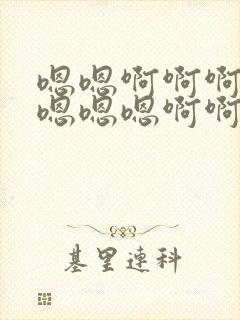 嗯嗯啊啊啊
嗯嗯嗯啊啊
基里连科